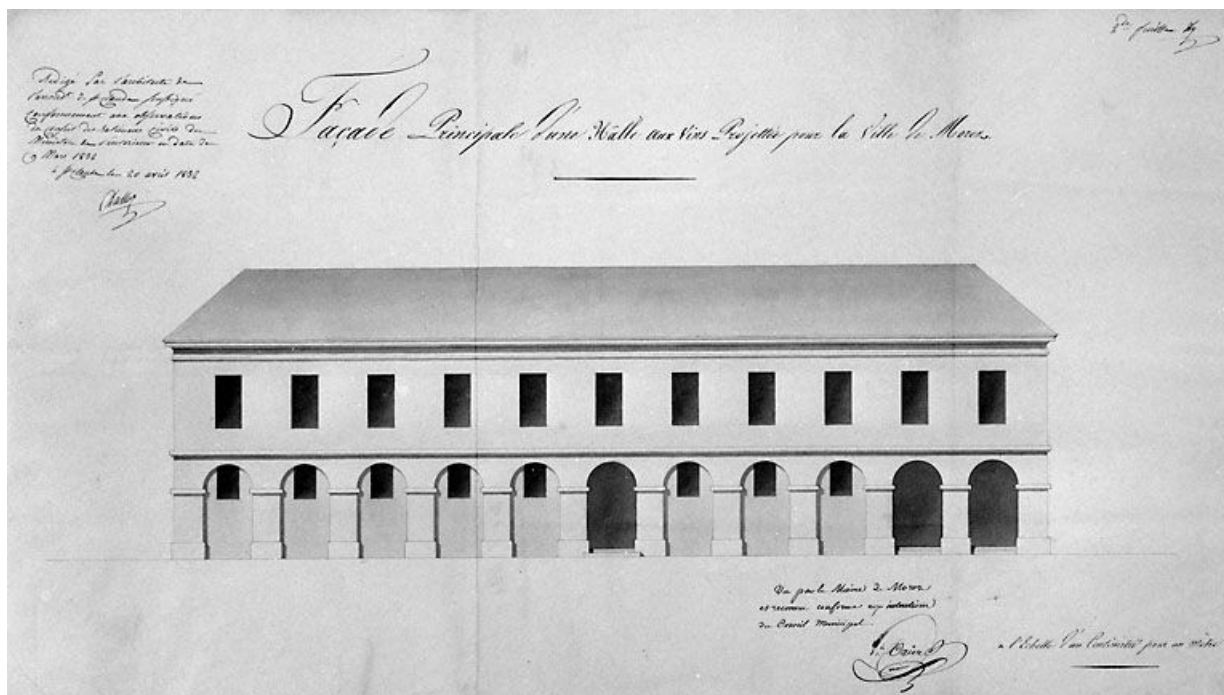 2de feuille
Rédigé par l'architecte de
l'arrondt de St Claude soussigné
Conformément aux observations
du Conseil des Bâtimens Civils du
Ministère de l'intérieur en date du
9 Mars 1832
à St Claude le 20 avril 1832
Façade Principale d'une Halle aux Vins Projettée pour la Ville de Morez
Vu par le Maire de Morez
et reconnu conforme aux intentions
du Conseil Municipal.
a l'Echelle d'un Centimètre pour un Mètre